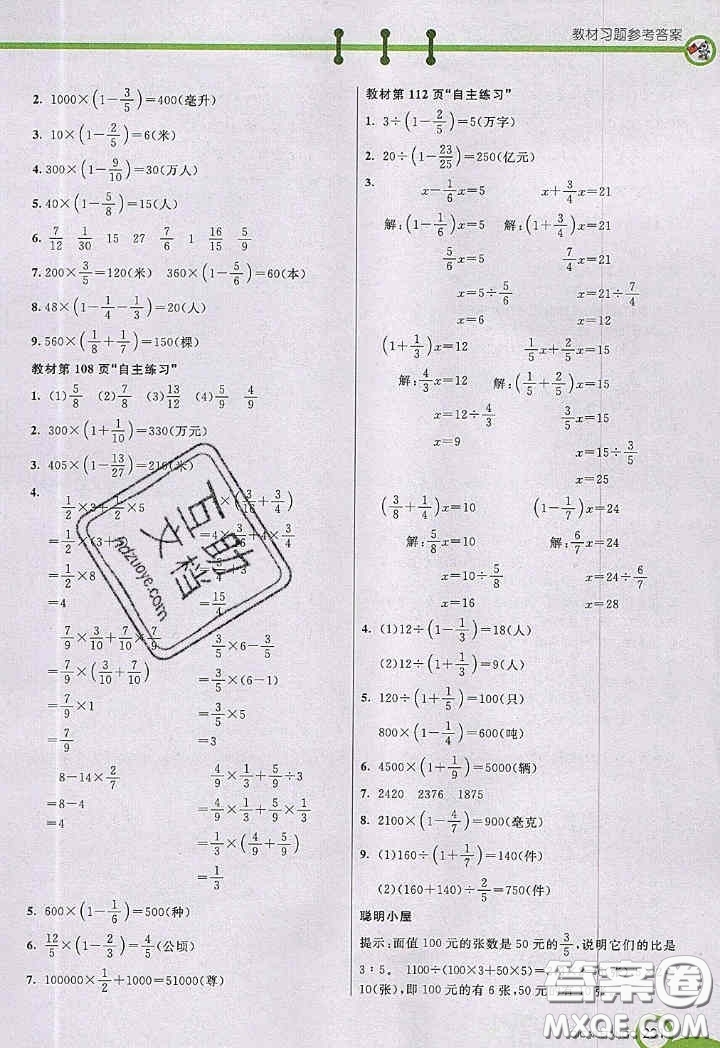 教材习题参考答案
2. 1000×(1-3/5)=400(毫升)
3. 10×(1-2/5)=6(米)
4. 300×(1-9/10)=30(万人)
5. 40×(1-5/8)=15(人)
6. 7/12 1/30 15 27 6/7 1 16/15 5/9
7. 200×3/5=120(米) 360×(1-5/6)=60(本)
8. 48×(1-1/4-1/3)=20(人)
9. 560×(1/8+1/7)=150(棵)
教材第 108 页“自主练习”
1. (1)5/8 (2)7/8 (3)13/12 (4)5/9 4/9
2. 300×(1+1/10)=330(万元)
3. 405×(1-13/27)=210(米)
4.
1/2×3+1/2×5
=1/2×8
=4
×(3/16+3/4)
=4×3/16+4×3/4
=15/4
7/9×3/10+7/10×7/9
=7/9×(3/10+7/10)
=7/9×1
=7/9
3/5×6-3/5
=3/5×(6-1)
=3/5×5
=3
8-14×2/7
=8-4
=4
4/9×1/3+5/9÷3
=4/9×1/3+5/9×1/3
=1/3×(4/9+5/9)
=1/3
5. 600×(1-1/6)=500(种)
6. 12/5×(1-2/3)=4/5(公顷)
7. 100000×1/2+1000=51000(尊)
教材第 112 页“自主练习”
1. 3÷(1-2/5)=5(万字)
2. 20÷(1-23/25)=250(亿元)
3.
x-1/6x=5
解:(1-1/6)x=5
5/6x=5
x=5÷5/6
x=6
x+3/4x=21
解:(1+3/4)x=21
7/4x=21
x=21÷7/4
x=12
(1+1/3)x=12
解:4/3x=12
x=12÷4/3
x=9
1/5x+2/5x=15
解:(1/5+2/5)x=15
3/5x=15
x=15÷3/5
x=25
(3/8+1/4)x=10
解:5/8x=10
x=10÷5/8
x=16
(1-1/7)x=24
解:6/7x=24
x=24÷6/7
x=28
4. (1)12÷(1-1/3)=18(人)
(2)12÷(1+1/3)=9(人)
5. 120÷(1+1/5)=100(只)
800×(1-1/4)=600(吨)
6. 4500×(1+1/9)=5000(辆)
7. 2420 2376 1875
8. 2100×(1-4/7)=900(毫克)
9. (1)160÷(1+1/7)=140(件)
(2)(160+140)÷2/5=750(件)
聪明小屋
提示:面值 100 元的张数是 50 元的3/5,说明它们的比是
3∶5。 1100÷(100×3+50×5)=
10(张),即 100 元的有 6 张,50 元
百助文档
hdzuoye.com
答案圈
MXQE.COM